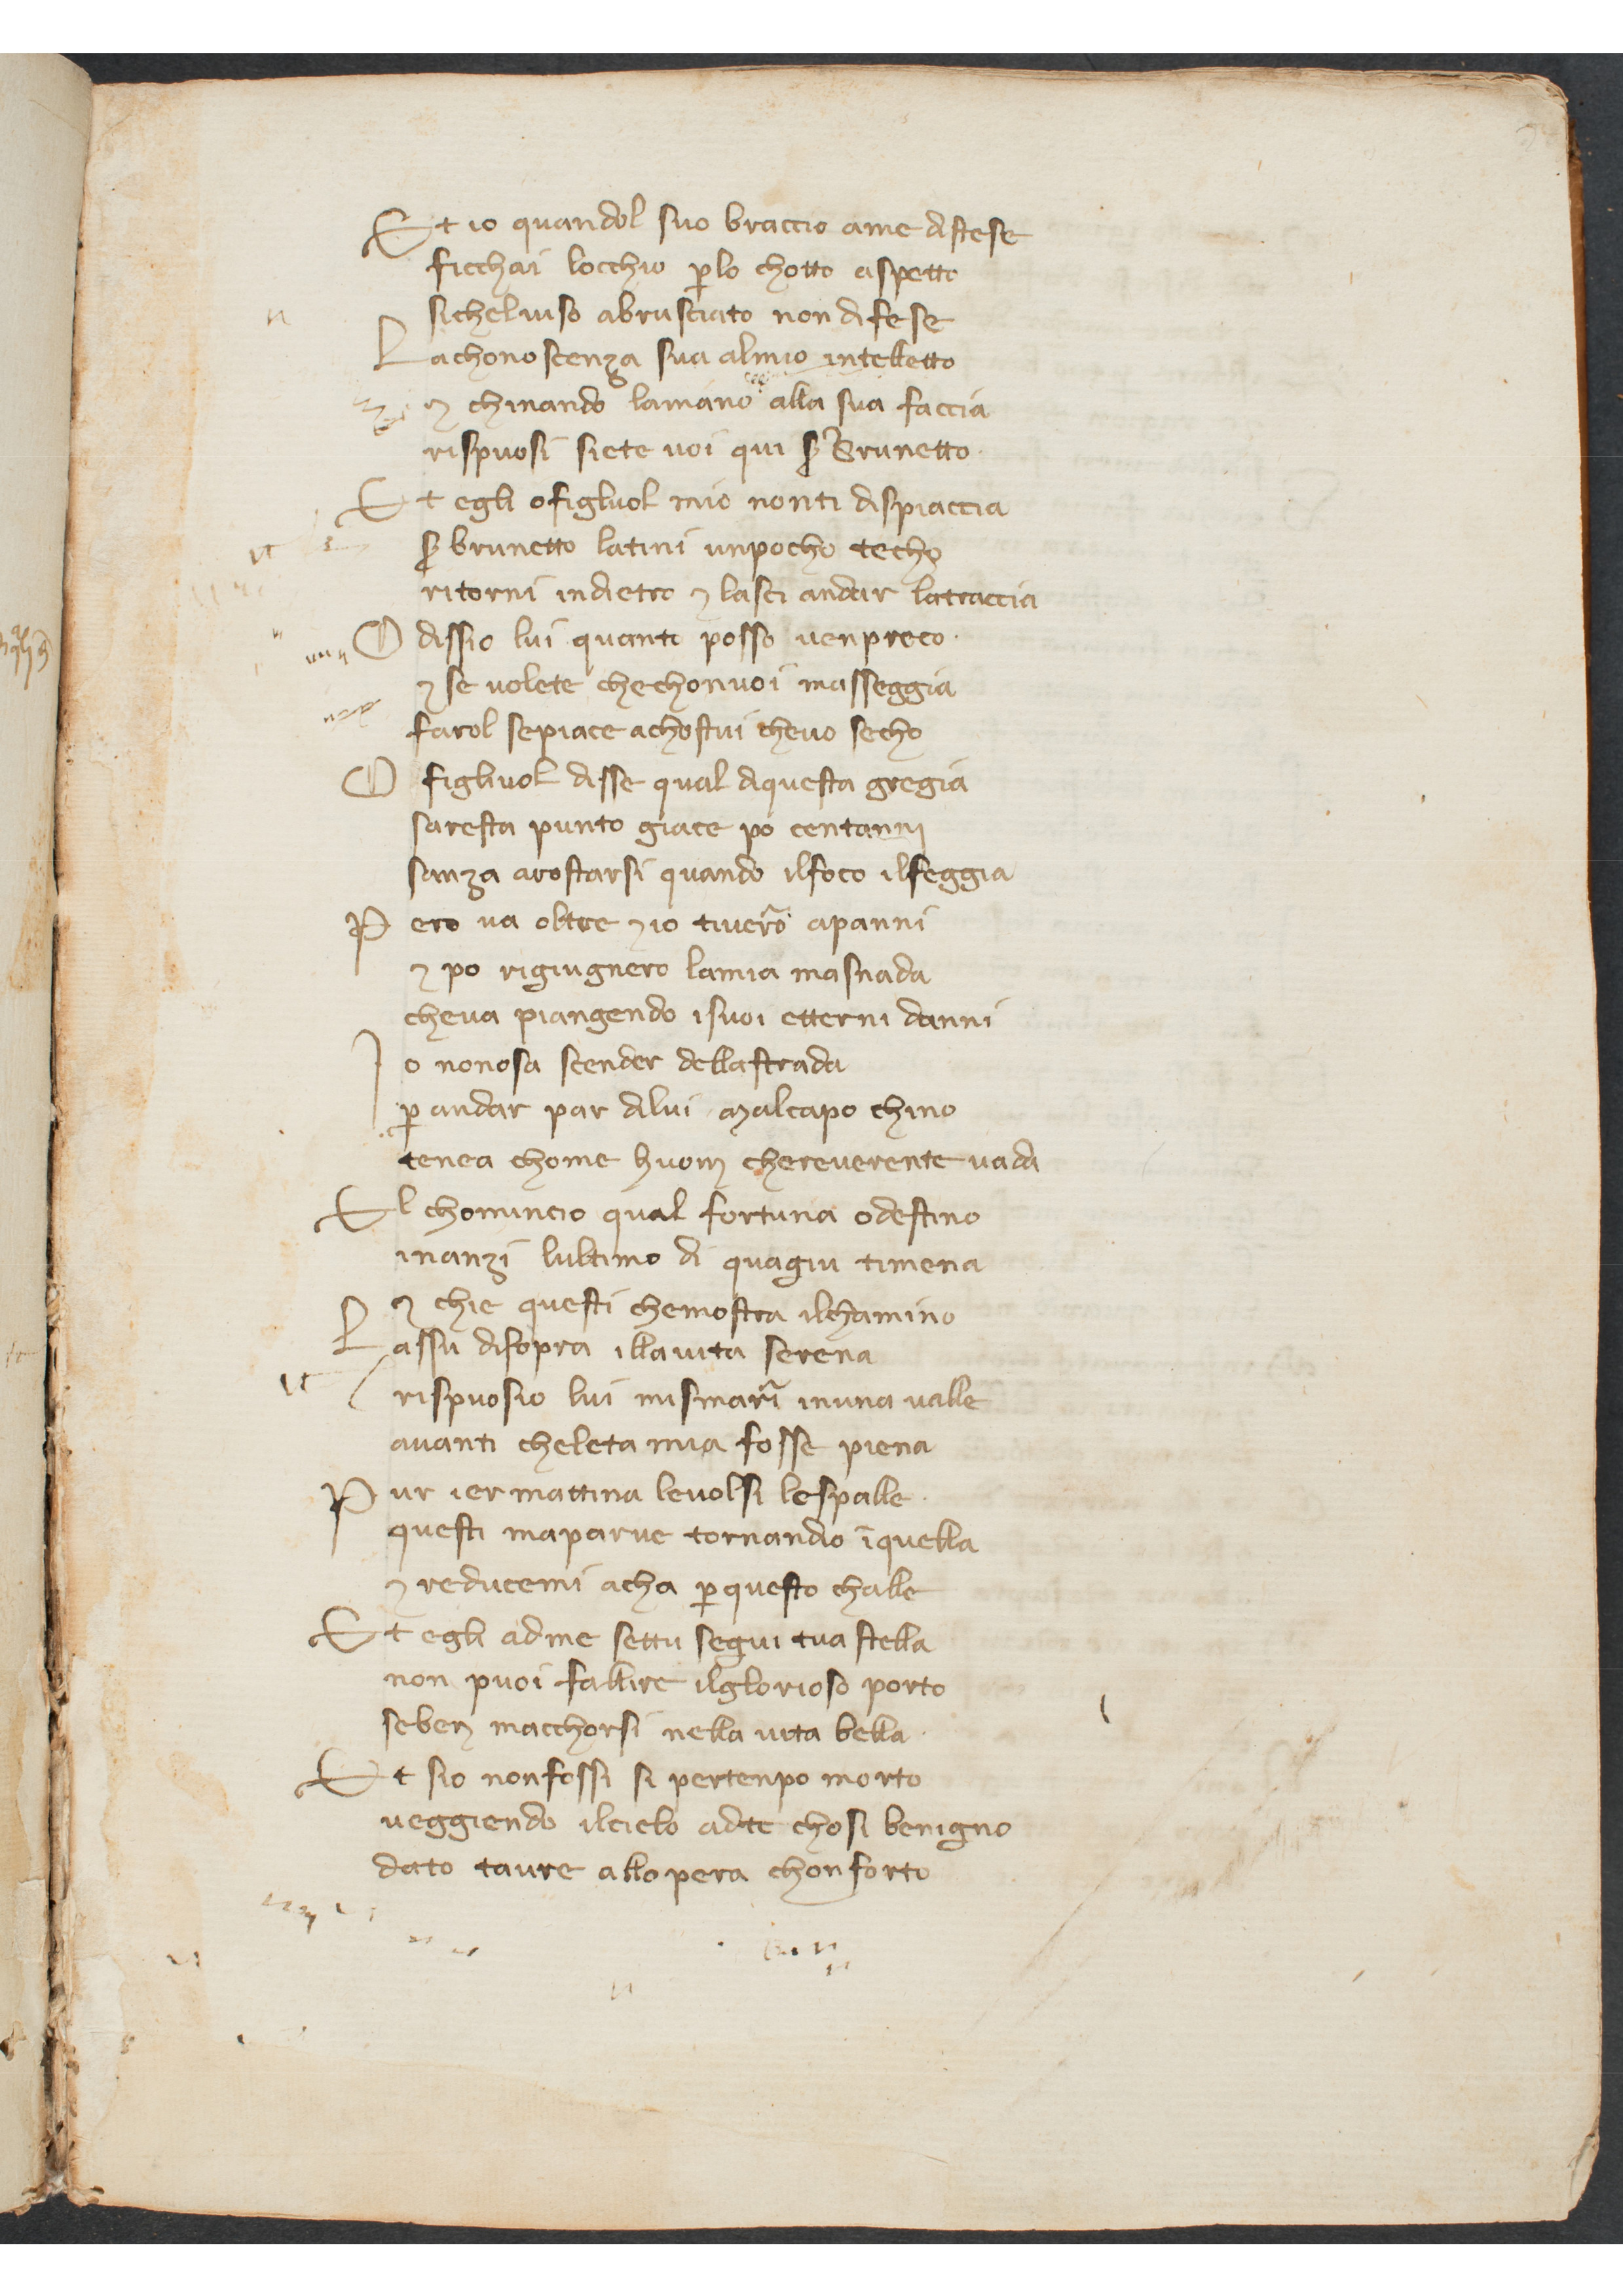 Et io quandol suo braccio ame distese
ficchai locchio ꝑlo chotto aspetto
sichelviso abrusciato non difese
Lachonoscenza sua almio intelletto
⁊ chinando lamano alla sua faccia
rispuosi siete voi qui ẜ Brunetto
Et egli ofigluol mio nonti dispiaccia
ẜ brunetto latini unpocho techo
ritorni indietro ⁊ lasci andar latraccia
O dissio lui quanto posso venpreco
⁊ se volete chechonvoi masseggia
farol sepiace achostui chevo secho
O figlivol disse qual diquesta gregia
saresta punto giace po centanni
sanza arostarsi quando ilfoco ilfeggia
Pero va oltre ⁊ io tiverro apanni
⁊ po rigiugnero lamia masnada
cheva piangendo isuoi etterni danni
Io nonosa scender dellastrada
ꝑ andar par dilui malcapo chino
tenea chome huom chereverente vada
El chomincio qual fortuna odestino
inanzi lultimo di quagiu timena
⁊ chie questi chemostra ilchamino
Lassu disopra illavita serena
rispuosio lui mismari inuna valle
avanti cheleta mia fosse piena
Pur ier mattina levolsi lespalle
questi maparve tornandio ī quella
⁊ reducemi acha ꝑquesto challe
Et egli adme settu segui tua stella
non puoi fallire ilglorioso porto
seben macchorsi nella vita bella
Et sio nonfossi si pertenpo morto
veggiendo ilcielo adte chosi benigno
dato taure allopera chonforto